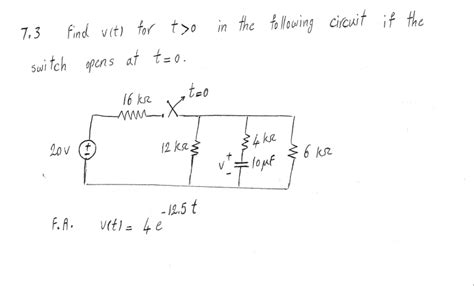 7.3 Find v(t) for t>0 in the following circuit if the
switch opens at t=0.
16 kΩ t=0
20V + - 12 kΩ 4 kΩ 6 kΩ
v + - 10 μF
F.A. v(t) = 4 e^-12.5 t